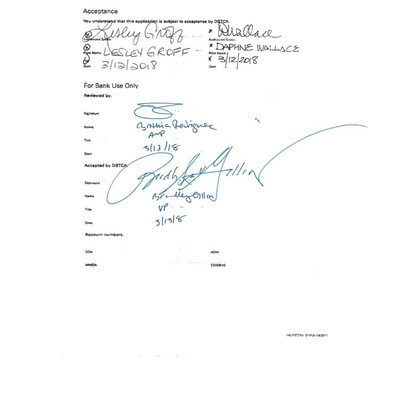 Acceptance
You understand that this application is subject to acceptance by DBTCA.
Lesley Groff DWallace
Authorized Signer
Print Name LESLEY GROFF Print Name DAPHNE WALLACE
Date 3/12/2018 3/12/2018
For Bank Use Only
Reviewed by:
Signature
Name Cynthia Rodriguez
Title AVP
Date 3/13/18
Accepted by DBTCA:
Signature
Name Bradley Gillin
Title VP
Date 3/13/18
Account numbers:
DDA NOW
MMDA CDS/IRAS